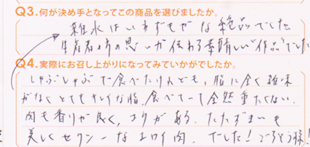 Q3.何が決め手となってこの商品を選びましたか。
雑水は
絶品でした
生産者の思いが伝わる素晴しい作品でした
Q4.実際にお召し上がりになってみていかがでしたか。
しゃぶしゃぶで食べたけれども、脂に全く雑味
がなくとてもキレイな脂。食べてて全然重たくない。
肉も香りが良く、コクがある。たたずまいも
美しくセクシーなエロイ肉。でした!ごちそう様!